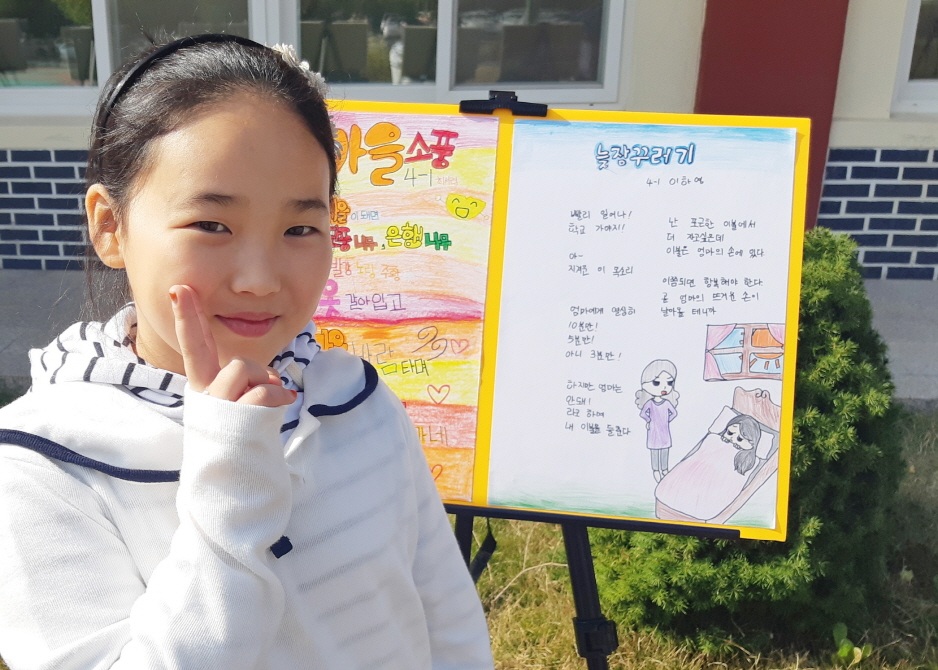 가을소풍
4-1
이 되면
나무, 은행나무
노랑 주황
옷 갈아입고
바람 타며
가네
늦잠꾸러기
4-1 이하영
빨리 일어나!
학교 가야지!
아~
지겨운 이 목소리
엄마에게 앵앵하
10분만!
5분만!
아니 3분만!
하지만 엄마는
안돼!
라고 하며
내 이불을 들춘다
난 포근한 이불에서
더 자고싶은데
이불은 엄마의 손에 있다
이쯤되면 항복해야 한다
곧 엄마의 뜨거운 손이
날아올 테니까